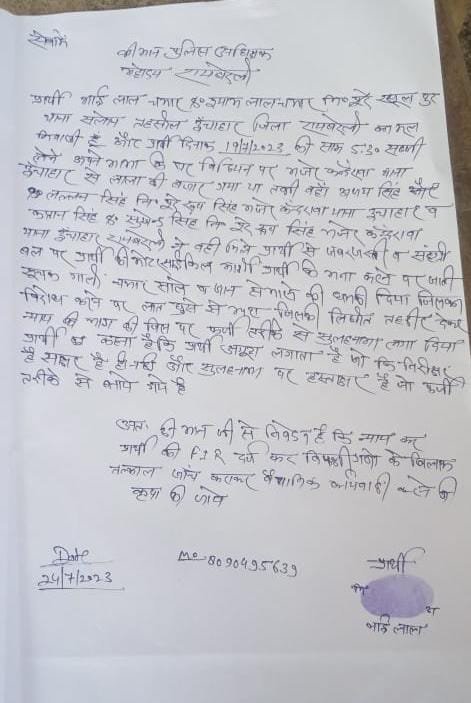 सेवामें
श्रीमान पुलिस अधीक्षक
महोदय रायबरेली
प्रार्थी भाई लाल चमार S/o श्याम लाल चमार नि० पूरे स्कूल पुर
थाना सलोन तहसील ऊँचाहार जिला रायबरेली का मूल
निवासी है और प्रार्थी दिनांक 19/7/2023 की साम 5:30 सब्जी
लेने अपने मामा के घर मजरे कन्दरावा थाना
ऊँचाहार से लाला की बजार गया था तभी वहाँ अभय सिंह और
S/o लल्लन सिंह नि० पूरे रूप सिंह मजरे कंदरावा थाना ऊँचाहार व
कप्तान सिंह S/o सिंह नि० पूरे रूप सिंह मजरे कंदरावा
थाना ऊँचाहार रायबरेली ने वही मिले प्रार्थी से जबरजस्ती व
बल पर प्रार्थी की मोटर साईकिल प्रार्थी के मना करने पर जाति
सूचक गाली चमार साले व जान से मारने की धमकी दिया जिसका
विरोध करने पर लात घुसे से मारा जिसकी लिखीत तहरीर देकर
न्याय की मांग की जिस पर फर्जी तरीके से सुलहनामा लगा दिया
प्रार्थी का कहना है कि प्रार्थी अंगूठा लगाता है जो कि निरीक्षर
है साक्षर है ही नही और सुलहनामा पर हस्ताक्षर है जो फर्जी
तरीके से बनाये गये है
अतः श्री मान जी से निवेदन है कि न्याय कर
प्रार्थी की F.I.R दर्ज कर विपक्षीगणो के खिलाफ
तत्काल जांच कराकर वैधानिक कार्यवाही करने की
कृपा की जाये
Date
24/7/2023
Mo- 8090495639
प्रार्थी
भाई लाल